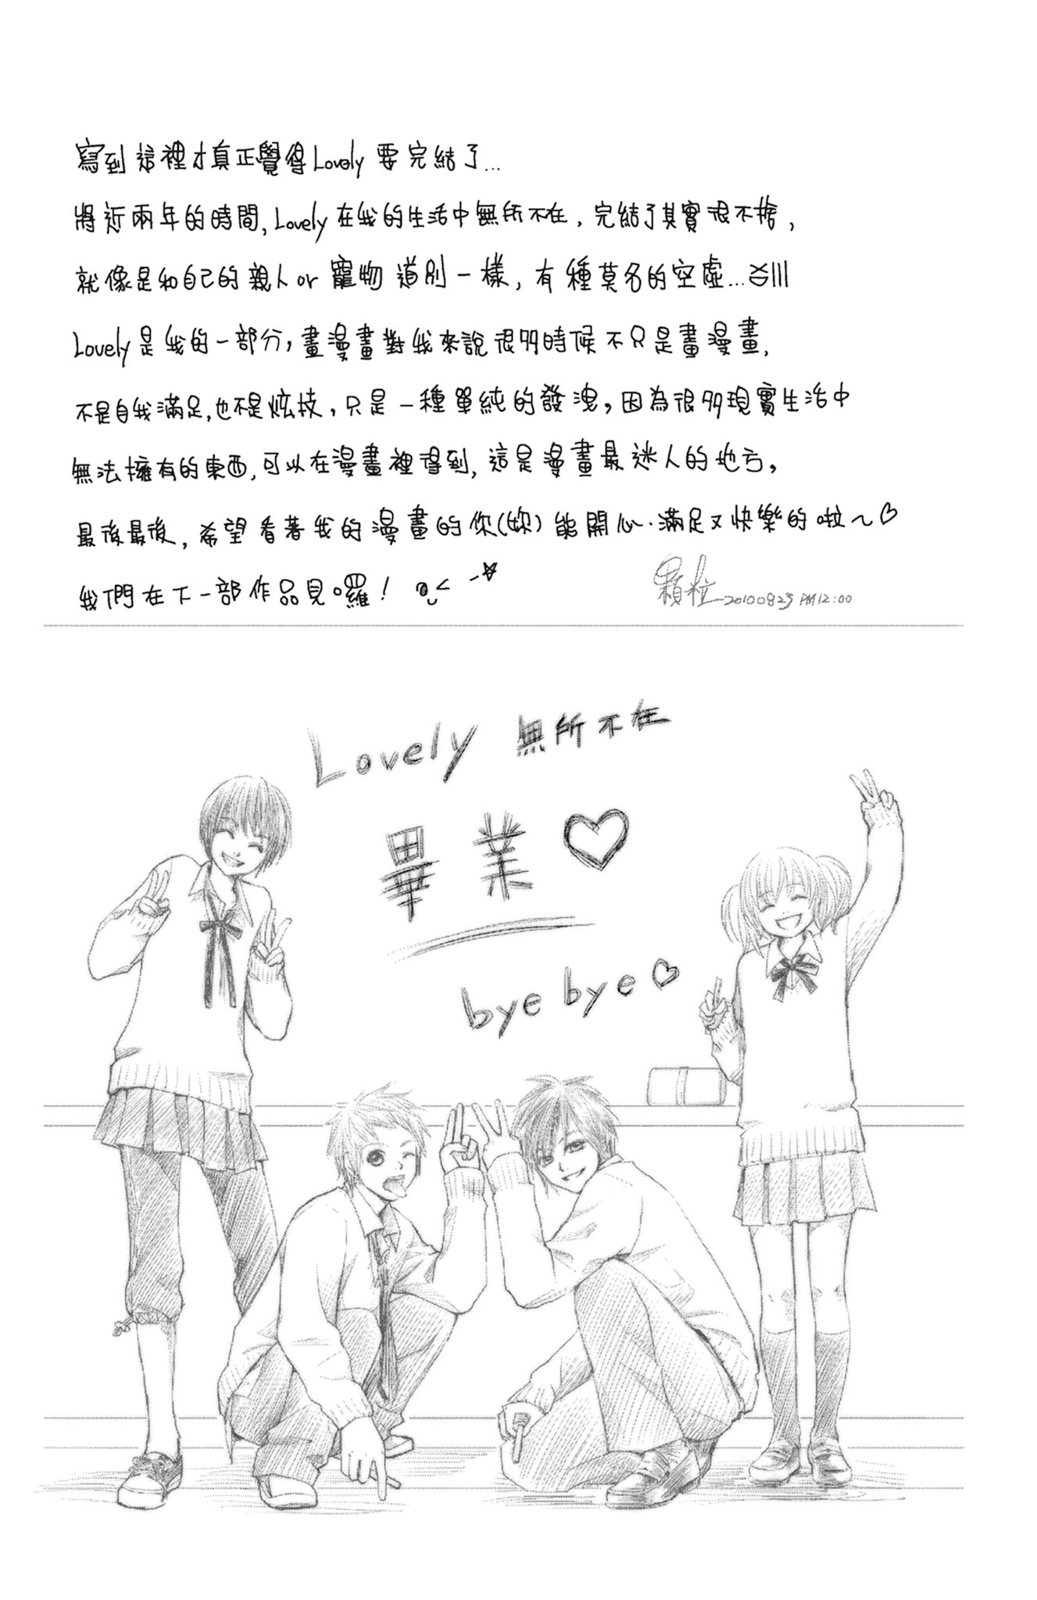 寫到這裡才真正覺得Lovely要完結了...
將近兩年的時間,Lovely在我的生活中無所不在,完結了其實很不捨,
就像是和自己的親人or寵物道別一樣,有種莫名的空虛...
Lovely是我的一部分,畫漫畫對我來說很多時候不只是畫漫畫,
不是自我滿足,也不是炫技,只是一種單純的發洩,因為很多現實生活中
無法擁有的東西,可以在漫畫裡得到,這是漫畫最迷人的地方,
最後最後,希望看著我的漫畫的你(妳)能開心.滿足又快樂的啦~♡
我們在下一部作品見囉!
顆粒 20100823 PM12:00
Lovely 無所不在
畢業♡
bye bye♡